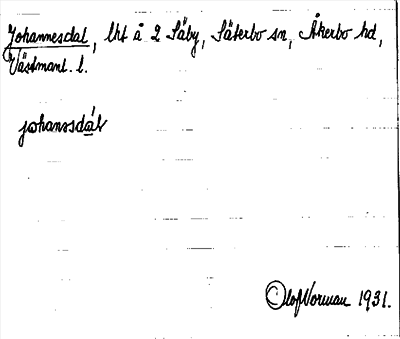 Johannesdal, lht å 2 Säby, Säterbo sn, Åkerbo hd,
Västmanl. l.
johansdal
Olof Norman 1931.